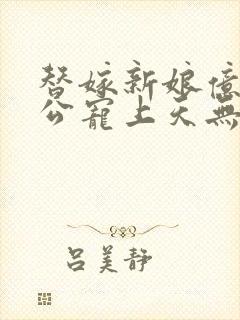 替嫁新娘億
公寵上天無
呂美靜